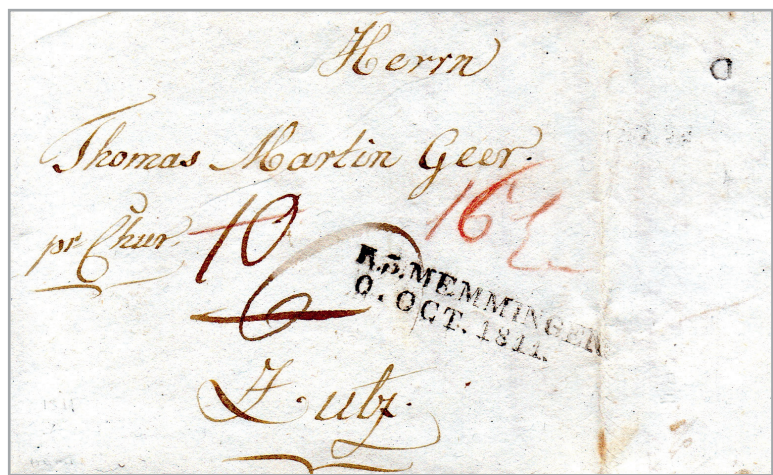 Herrn
D
Thomas Martin Geer.
pr Chur.
10
16
6
R.3. MEMMINGEN
0. OCT. 1811.
Zutz.
1811